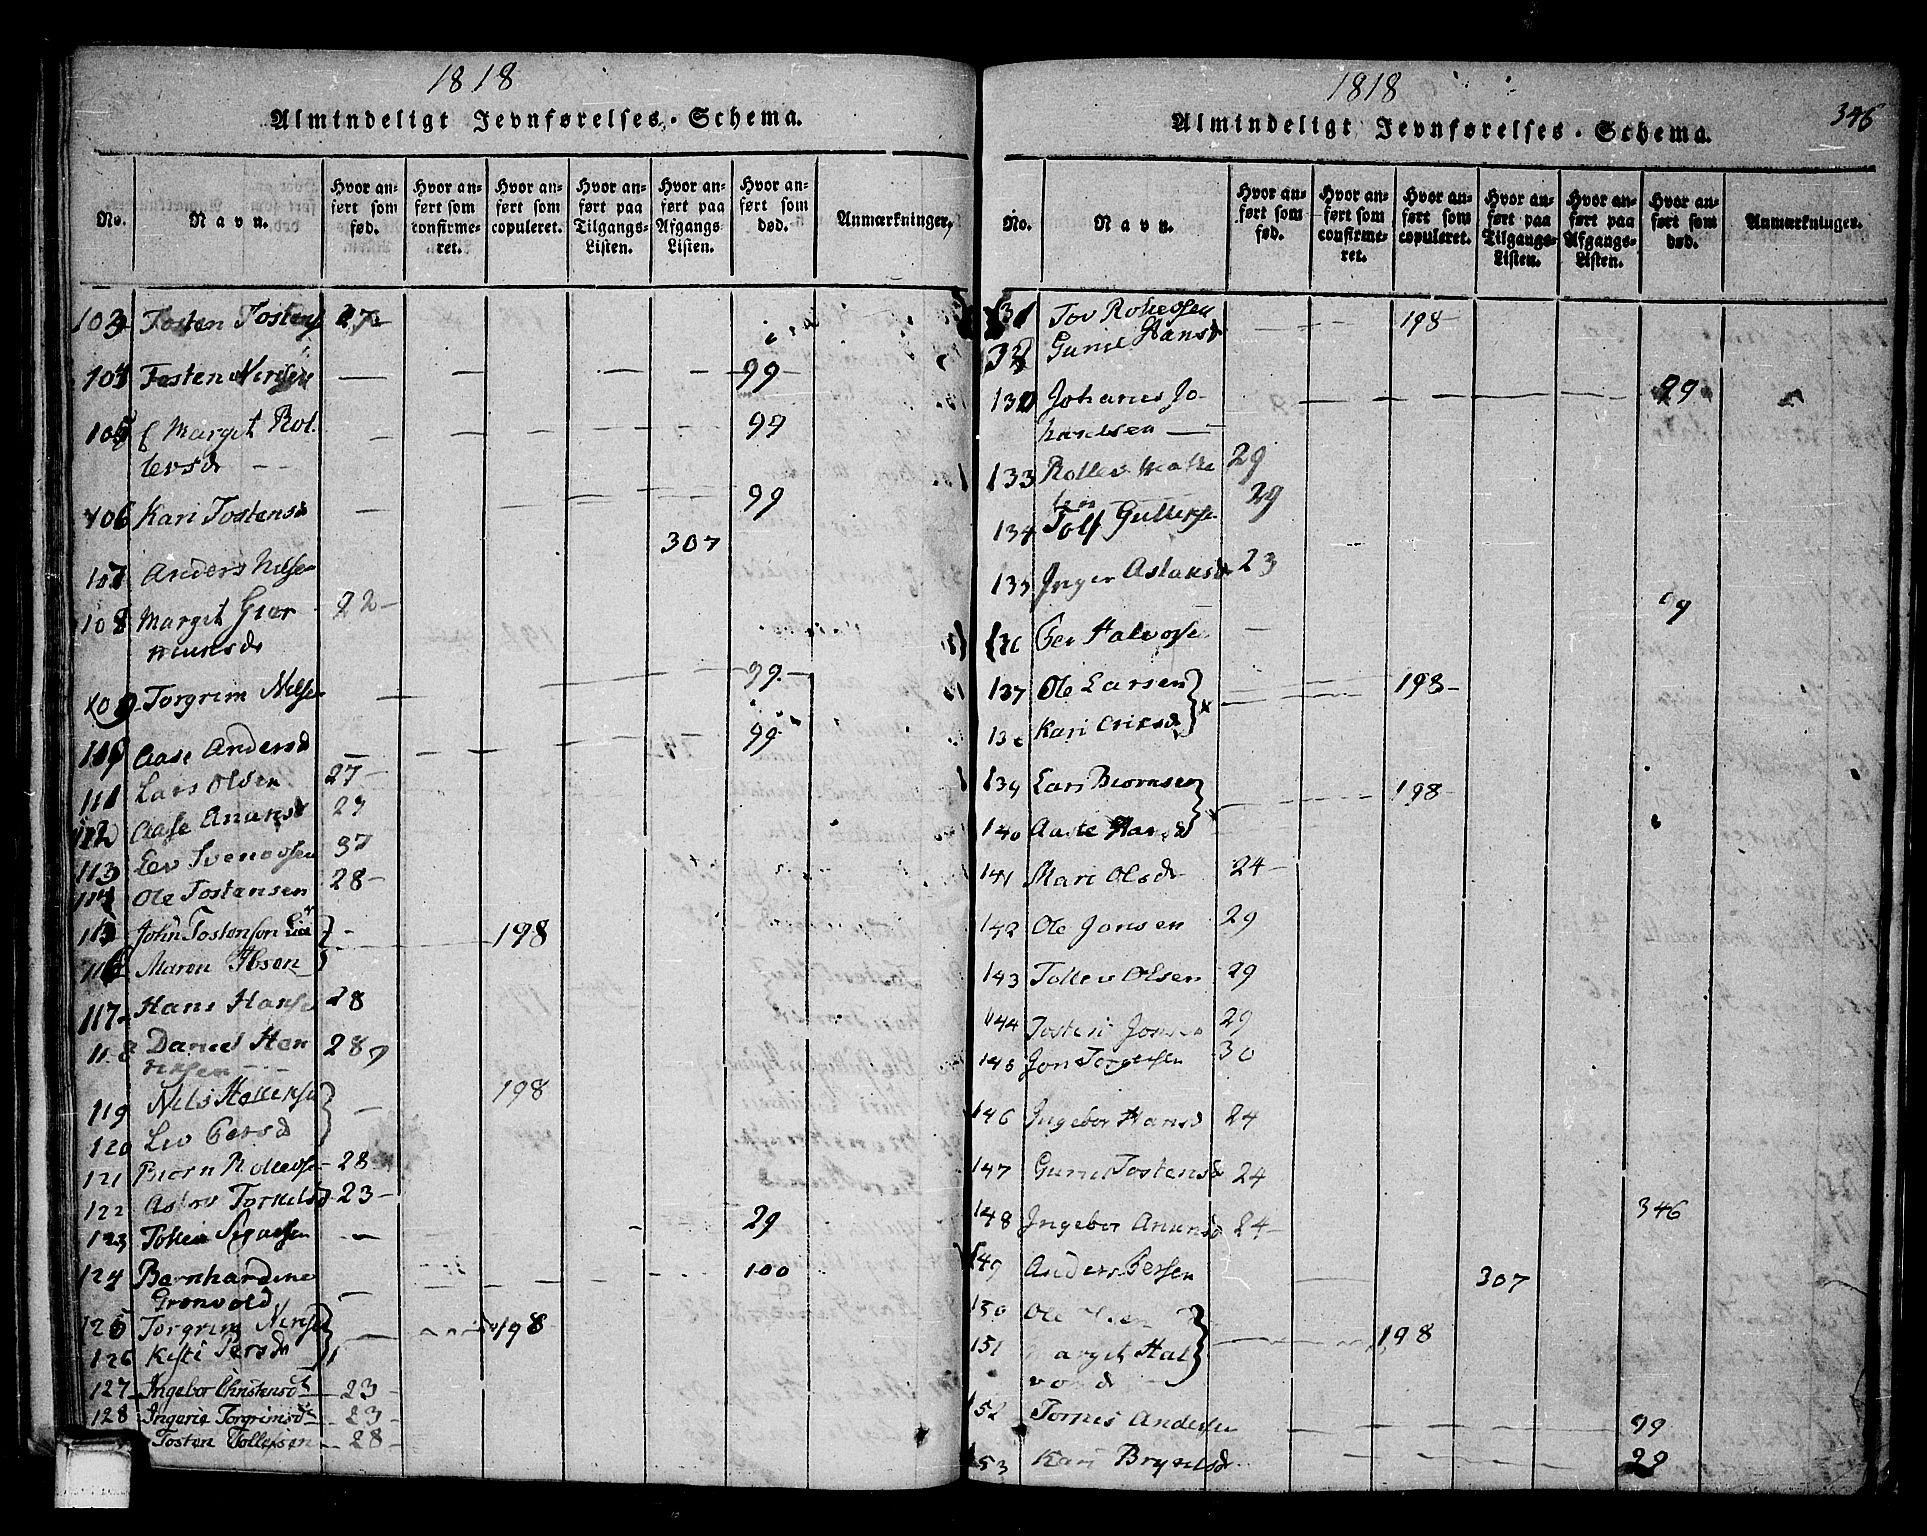 1818
Almindeligt Jevnførelses-Schema.
No. Navn. Hvor anført som fød. Hvor anført som confirmeret. Hvor anført som copuleret. Hvor anført paa Tilgangs-Listen. Hvor anført paa Afgangs-Listen. Hvor anført som død. Anmærkninger.
103 Tosten Tostens 27
104 Tosten — — — — — 99
105 Margit Rol- — — — — 99
levsd — —
106 Kari Tostensd — — — — 99
107 Anders Nilsen 307
108 Margit Gior 22 —
munsd
109 Torgrim Nilsen — — — 99 —
110 Aase Andersd — — — — 99
111 Lars Olsen 27 —
112 Aase Anunsd 27
113 Lev Svenovsen 37
114 Ole Tostensen 28 —
115 John Tostenson Lie — 198
116 Maren Ibsen
117 Hans Hansen 28
118 Daniel Hen 287
riksen — —
119 Nils Halleksen — 198
120 Liv Persd
121 Biorn Rollevsen — 28
122 Aslov Torkelsd 23 —
123 — — 29
124 Bernhardine — — — — — 100
Gronvold
125 Torgrim — — 198
126 Kisti Persd
127 Ingebor Christensd 23 —
128 Ingerie Torgrimsd 23 —
Tosten Tollefsen — 28 —
1818
346
Almindeligt Jevnførelses-Schema.
No. Navn. Hvor anført som fød. Hvor anført som confirmeret. Hvor anført som copuleret. Hvor anført paa Tilgangs-Listen. Hvor anført paa Afgangs-Listen. Hvor anført som død. Anmærkninger.
131 Tov Rollevsen — — 198 —
Gunil Hansd
132 Johanes Jo — — — — — 99
hanesen —
133 Rollev 29
134 Tolf Gulleksen 29
135 Inger Aslaksd 23
136 Per Halvorsen — 99
137 Ole Larsen — — 198 —
138 Kari Eriksd
139 Lars Biornsen — — 198 —
140 Aaste Hansd
141 Mari Olsd 24 —
142 Ole Jonsen 29
143 Tollev Olsen 29
144 Tosten Jonsen 29
145 Jon Torgersen 30
146 Ingebor Hansd 24
147 Gunil Tostensd 24
148 Ingebor Anunsd 24 — 346
149 Anders Persen — 307
150 Ole Olsen
151 Margit Hal — — 198
vorsd
152 Tornis Andersen — — — — 99
153 Kari Brynilsd — — — 29